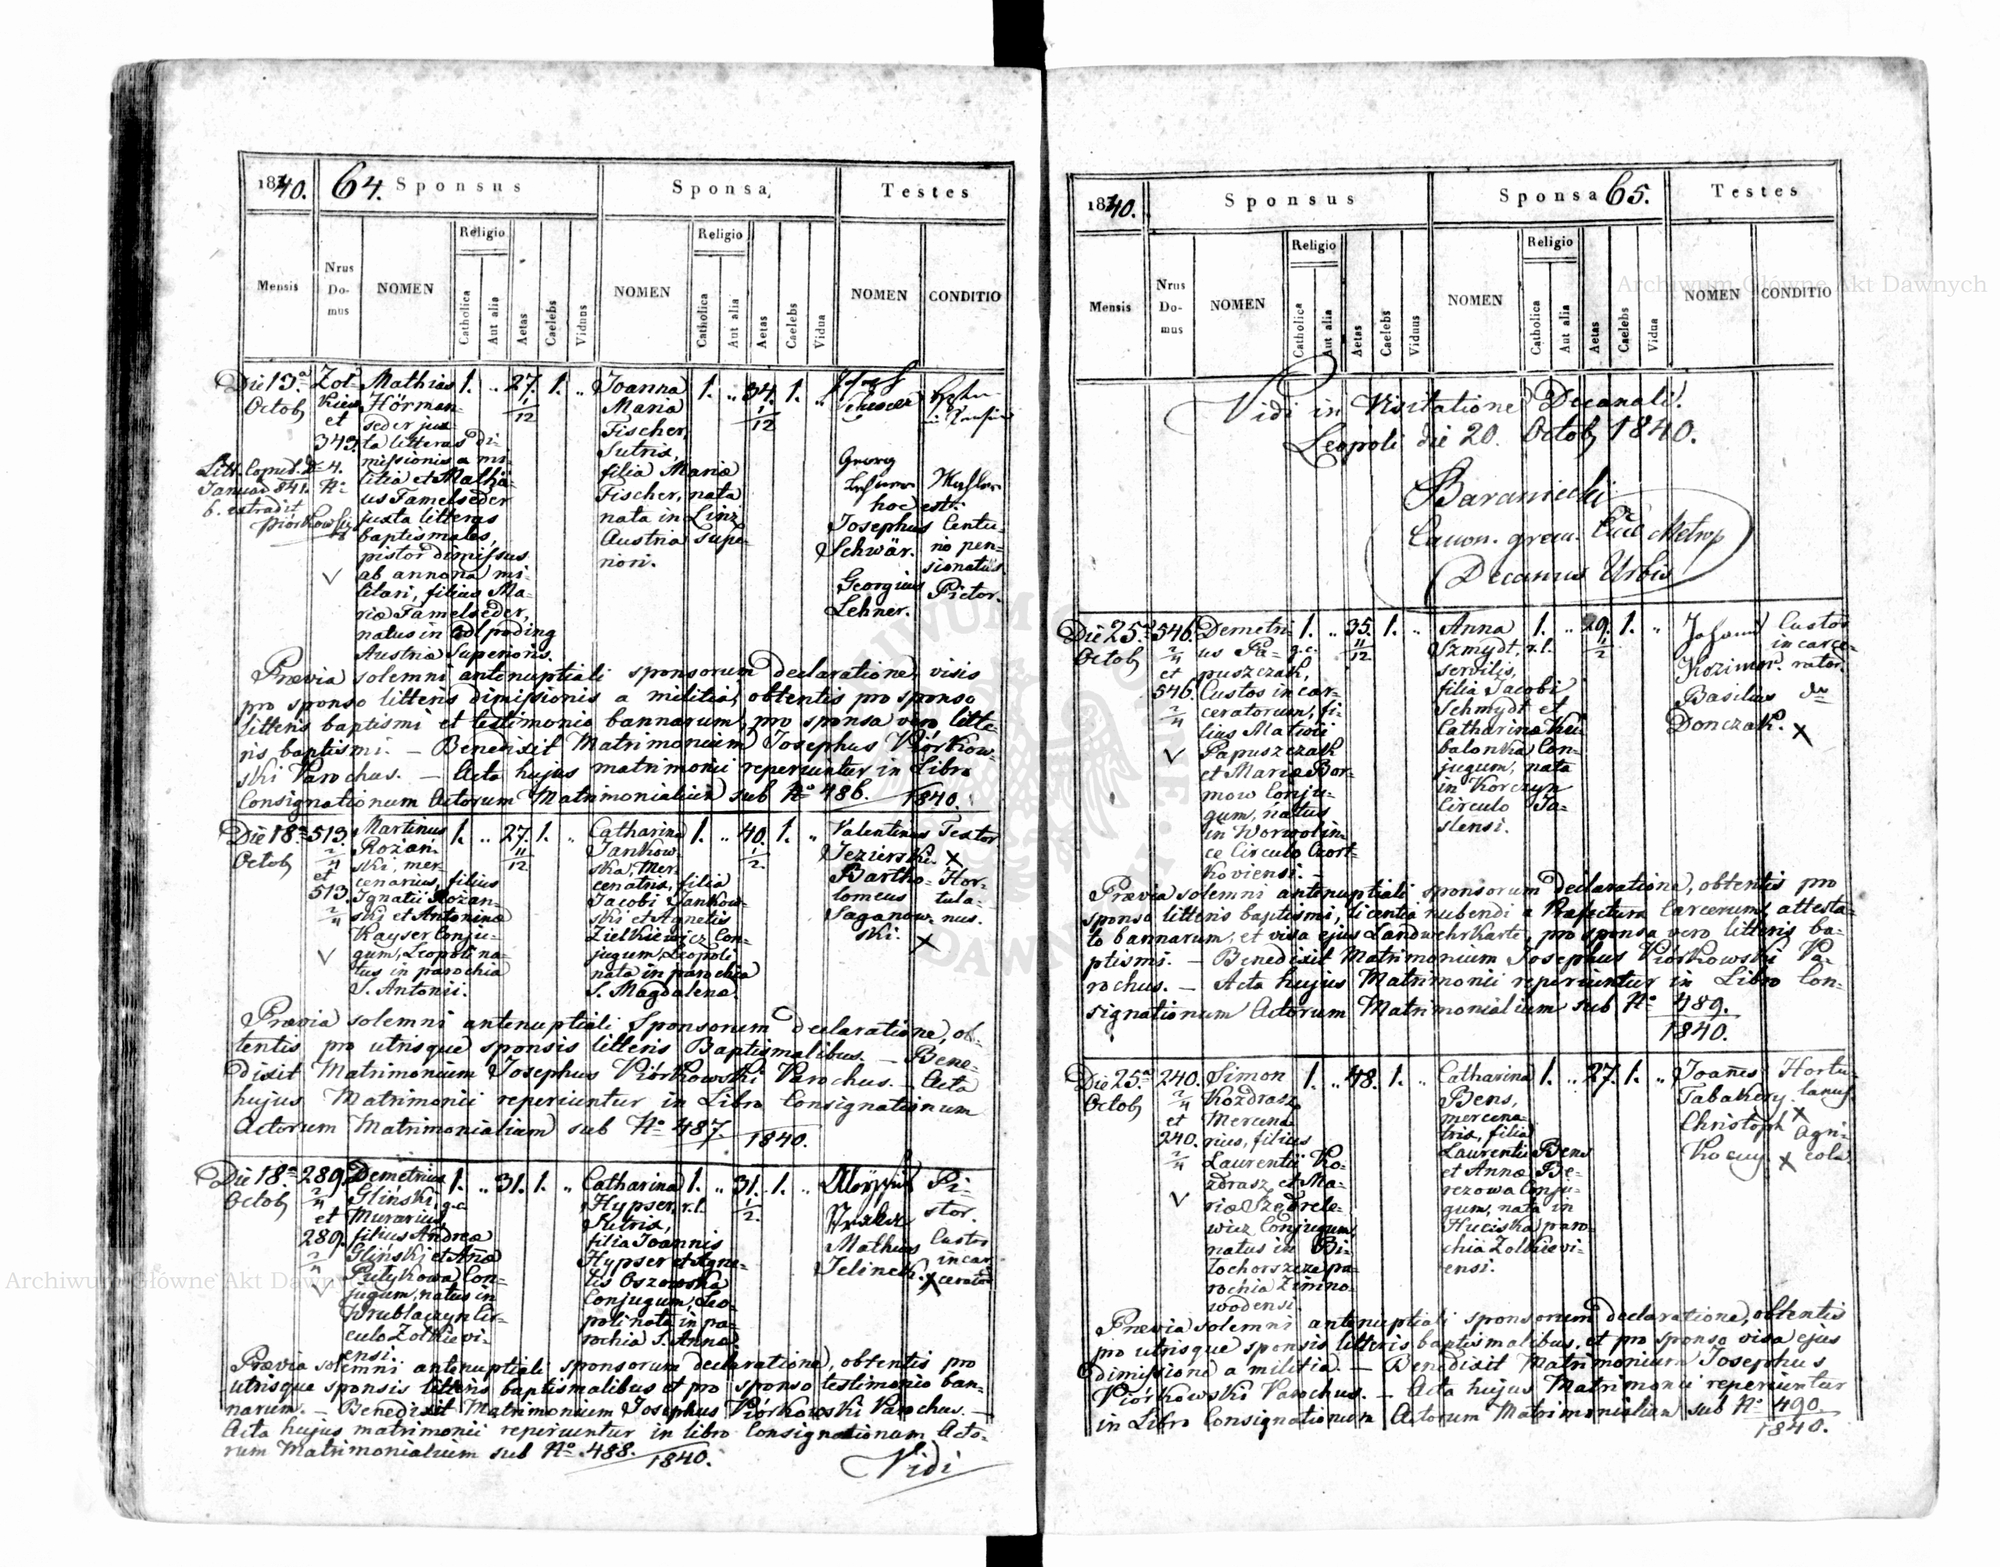 1840. 64. Sponsus Sponsa Testes
Mensis Nrus Domus NOMEN Religio Catholica Aut alia Aetas Caelebs Viduus NOMEN Religio Catholica Aut alia Aetas Caelebs Vidua NOMEN CONDITIO
Die 13a
Octob
Zol-
kiew
et
343.
Mathias
Hörman-
seder jux
ta litteras di-
missionis a mi-
litia et Mathä-
us Tamelseder
juxta litteras
baptismales,
pistor dimissus
ab annona mi-
litari, filius Ma-
riæ Tamelseder,
natus in
Austria Superioris.
1. „ 27. 1/12 1. „
Joanna
Maria
Fischer,
Sutrix,
filia Mariæ
Fischer, nata
nata in Linz
Austria supe-
riori.
1. „ 34. 1/12 1. „
Georg
hoc est:
Josephus
Schwär.
Georgius
Lehner.
Centu-
rio pen-
sionatus
Pictor.
Januar 841.
b. extradit
Piórkowski
Prævia solemni antenuptiali sponsorum declaratione, visis
pro sponso litteris dimissionis a militia, obtentis pro sponso
litteris baptismi et testimonio bannorum, pro sponsa vero litte-
ris baptismi. — Benedixit Matrimonium Josephus Piórkow-
ski Parochus. — Acta hujus matrimonii reperiuntur in Libro
Consignationum Actorum Matrimonialium sub No 486. 1840.
Die 18a
Octob
513.
2/4
et
513.
2/4
Martinus
Rozan-
ski, mer-
cenarius, filius
Ignatii Rozan-
ski et Antoninæ
Kayser Conju-
gum, Leopoli na-
tus in parochia
S. Antonii.
1. „ 27. 11/12 1. „
Catharina
Jankow-
ska, Mer-
cenatrix, filia
Jacobi Jankow-
ski et Agnetis
Zielkiewicz Con-
jugum, Leopoli
nata in parochia
S. Magdalenæ.
1. „ 40. 1/2 1. „
Valentinus
Jezierski.
Bartho-
lomeus
Saganow-
ski.
Textor
X
Hor-
tula-
nus.
X
Prævia solemni antenuptiali Sponsorum declaratione, ob-
tentis pro utrisque sponsis litteris Baptismalibus. — Bene-
dixit Matrimonium Josephus Piórkowski Parochus. — Acta
hujus Matrimonii reperiuntur in Libro Consignationum
Actorum Matrimonialium sub No 487. 1840.
Die 18a
Octob
289.
2/4
et
289.
2/4
Demetrius
Gliński, g.c.
Murarius,
filius Andreæ
Gliński et Añæ
Putykowa Con-
jugum, natus in
Wrublaczyn Cir-
culo Zolkievi-
ensi.
1. „ 31. 1. „
Catharina
Hypser, r.l.
Sutrix,
filia Joannis
Hypser et Agne-
tis Oszowska
Conjugum, Leo-
poli nata in pa-
rochia S. Annæ.
1. „ 31. 1/2. 1. „
Mathias
Jelinek.
Pi-
stor.
Custos
incar-
cerator
X
Prævia solemni antenuptiali sponsorum declaratione, obtentis pro
utrisque sponsis litteris baptismalibus et pro sponso testimonio ban-
norum. — Benedixit Matrimonium Josephus Piórkowski Parochus. —
Acta hujus matrimonii reperiuntur in libro Consignationum Acto-
rum Matrimonialium sub No 488. 1840.
Vidi
1840. Sponsus Sponsa 65. Testes
Mensis Nrus Domus NOMEN Religio Catholica Aut alia Aetas Caelebs Viduus NOMEN Religio Catholica Aut alia Aetas Caelebs Vidua NOMEN CONDITIO
Vidi in Visitatione Decanali.
Leopoli die 20. Octob 1840.
Baraniecki
Canon. græc. Eccl Metrop
Decanus Urbis
Die 25a
Octob
546.
2/4
et
546.
2/4
Demetri-
us Pa-
puszczak, g.c.
Custos incar-
ceratorum, fi-
lius Matwii
Papuszczak
et Mariæ Bor-
mow Conju-
gum, natus
in Worwolin-
ce Circulo Czort-
koviensi.
1. „ 35. 11/12 1. „
Anna
Szmydt, r.l.
servilis,
filia Jacobi
Schmydt et
Catharinæ Ku-
balonka Con-
jugum, nata
in Korczyn
Circulo Ja-
slensi.
1. „ 29. 1/2 1. „
Johann
Kozimor.
Basilius
Donczak. X
Custos
incarce-
rator.
do
Prævia solemni antenuptiali sponsorum declaratione, obtentis pro
sponso litteris baptismi, licentia nubendi a Præfectura Carcerum, attesta-
to bannorum, et visa ejus Landwehrkarte, pro sponsa vero litteris ba-
ptismi. — Benedixit Matrimonium Josephus Piórkowski Pa-
rochus. — Acta hujus Matrimonii reperiuntur in Libro Con-
signationum Actorum Matrimonialium sub No 489.
1840.
Die 25a
Octob
240.
2/4
et
240.
2/4
Simon
Kozdrasz,
Mercena-
rius, filius
Laurentii Ko-
zdrasz et Ma-
riæ Szedrele-
wicz Conjugum,
natus in Bi-
lochorszcze pa-
rochia Zimno-
wodensi.
1. „ 48. 1. „
Catharina
Bens,
mercena-
trix, filia
Laurentii Bens
et Annæ Be-
rezowa Conju-
gum, nata in
Huciska paro-
chia Zolkievi-
ensi.
1. „ 27. 1. „
Joañes
Tabakery.
X
Christoph
X
Hortu-
lanus.
Agri-
cola
Prævia solemni antenuptiali sponsorum declaratione, obtentis
pro utrisque sponsis litteris baptismalibus, et pro sponso visa ejus
dimissione a militia. — Benedixit Matrimonium Josephus
Piórkowski Parochus. — Acta hujus Matrimonii reperiuntur
in Libro Consignationum Actorum Matrimonialium sub No 490.
1840.
Archiwum Główne Akt Dawnych
Archiwum Główne Akt Dawnych